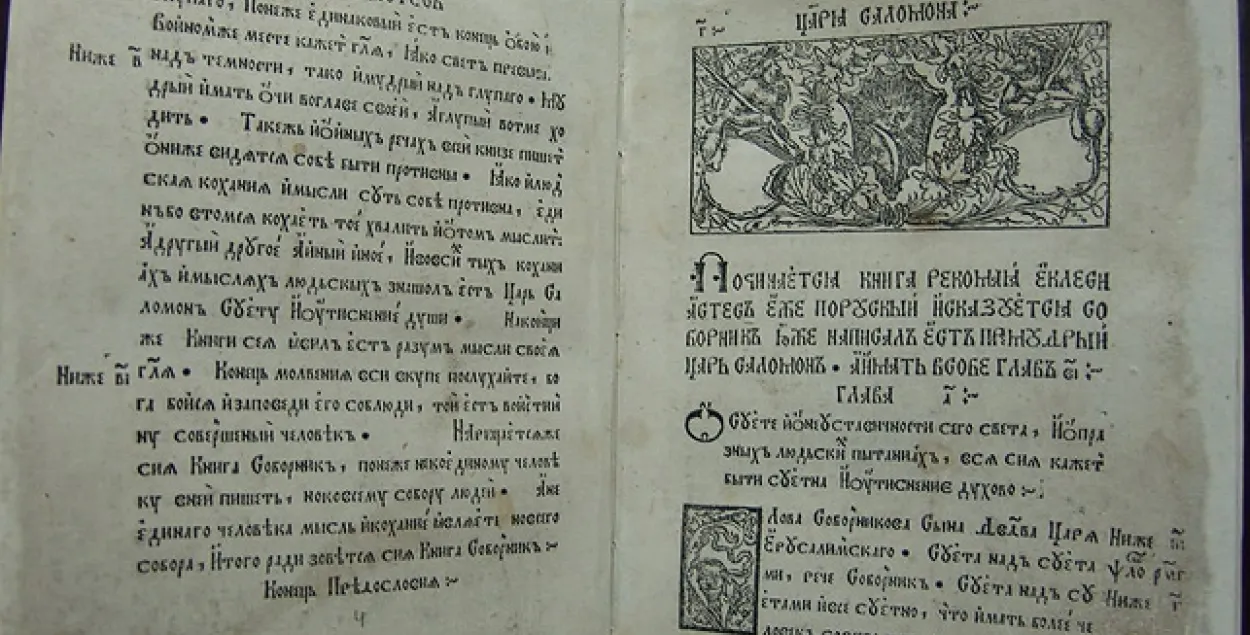 лупаго, Понеже є҆динаковый є҆стъ конець ѻ҆бою и҆
войномже месте кажет гл҃ѧ, Ꙗ҆ко свет превыш.
Ниже в҃ надъ темности, тако и҆мудрый надъ глупаго • Мꙋ
дрый и҆мать ѻ҆чи воглаве своей, а҆глупый вотме хо
дить • Такежь и҆ѻ҆ныхъ речахъ сей книзе пишет
ѻ҆ниже видѧтсѧ собѣ быти противны • Ꙗ҆ко и҆люд
скаѧ коханиѧ и҆мысли сꙋть собѣ противна, є҆ди
нъбо втомсѧ кохаєть тоє хвалить и҆ѻ҆томъ мыслить
а҆другый дрꙋгоє а҆иный иноє, И҆вовси тыхъ кохани
ахъ и҆мыслѧхъ людьскыхъ знашолъ є҆стъ Царь Са
ломонъ Сꙋєту И҆ꙋ҆тиснениє души • Наконци
же Книги сеѧ и҆ѕѧвилъ є҆стъ разум мысли своеѧ
Ниже в҃і гл҃ѧ • Конець молвениѧ вси вкупе послухайте, бо
га бойсѧ и҆заповеди є҆го соблюди, той є҆стъ воистин
ну совершеный человекъ • Нарицаєтсѧже
сиѧ Книга Соборникъ, понеже неко є҆диному человѣ
ку вней пишеть, но ковсему собору людей • А҆не
є҆динаго человѣка мысль и҆коханиє и҆ѕѧвлѧєть но всего
собора, И҆того ради зовѣтсѧ сиѧ Книга Соборникъ :~
Конець Прє҆дословиѧ :~
Ч
г҃ :~ ЦАРЯ САЛОМОНА :~
Починаєтсѧ книга рекомаѧ є҆клеси
ѧстесъ є҆же порускый и҆сказꙋєтсѧ со
борникъ ю҆же написалъ є҆стъ премꙋдрый
царь саломонъ • а҆имать всобе главъ в҃і :~
ГЛАВА а҃ :~
Ѻ҆ Сꙋєте и҆ѻ҆неꙋставичности сего света, И҆ѻ҆пра
зныхъ людьских пытаниахъ, всѧ сиѧ кажеть
быти сꙋєтна И҆ꙋ҆тиснениє духово :~
Слова Соборникова Сына Давыда Царѧ Ниже
є҆русалимскаго • Сꙋєта надъ сꙋєта Ѱало
ми, рече Соборникъ • Сꙋєта надъ сꙋ Ниже
єтами и҆все сꙋєтно, что имать более че